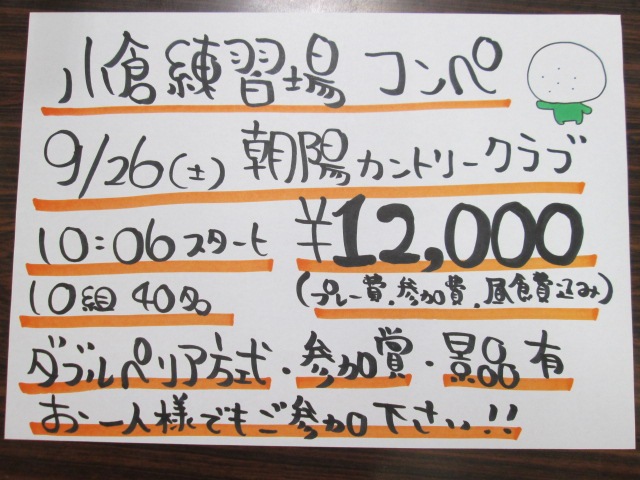 小倉練習場 コンペ
9/26(土) 朝陽カントリークラブ
10:06スタート ¥12,000
10組 40名 (プレー費、参加費、昼食費込み)
ダブルペリア方式・参加賞・景品有
お一人様でもご参加下さい!!